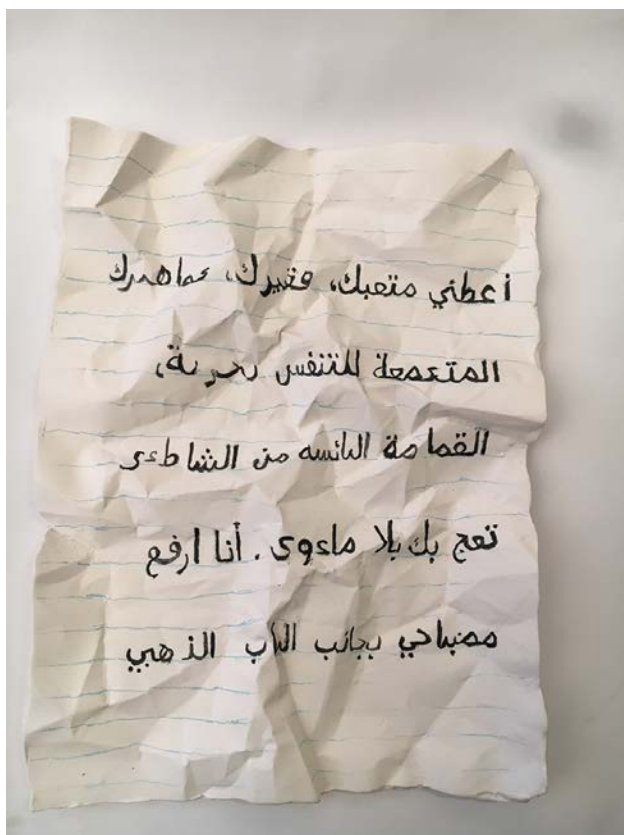 أعطني متعبك، فقيرك، عماهدك
المتعمعة للتنفس بحرية،
القمامة البائسه من الشاطئ
تعج بك بلا ماءوى. أنا ارفع
مصباحي بجانب الباب الذهبي